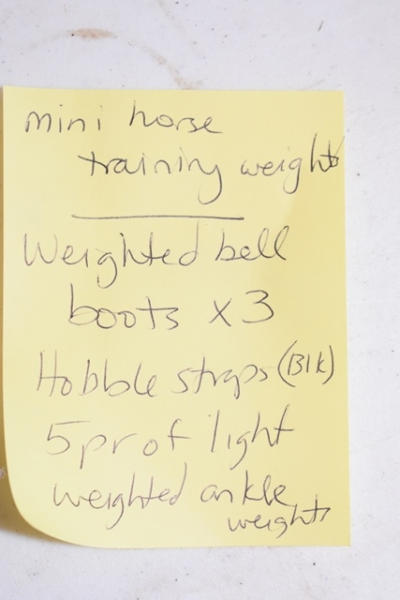 mini horse
training weights
Weighted bell
boots x 3
Hobble straps (Blk)
5 pr of light
weighted ankle
weights